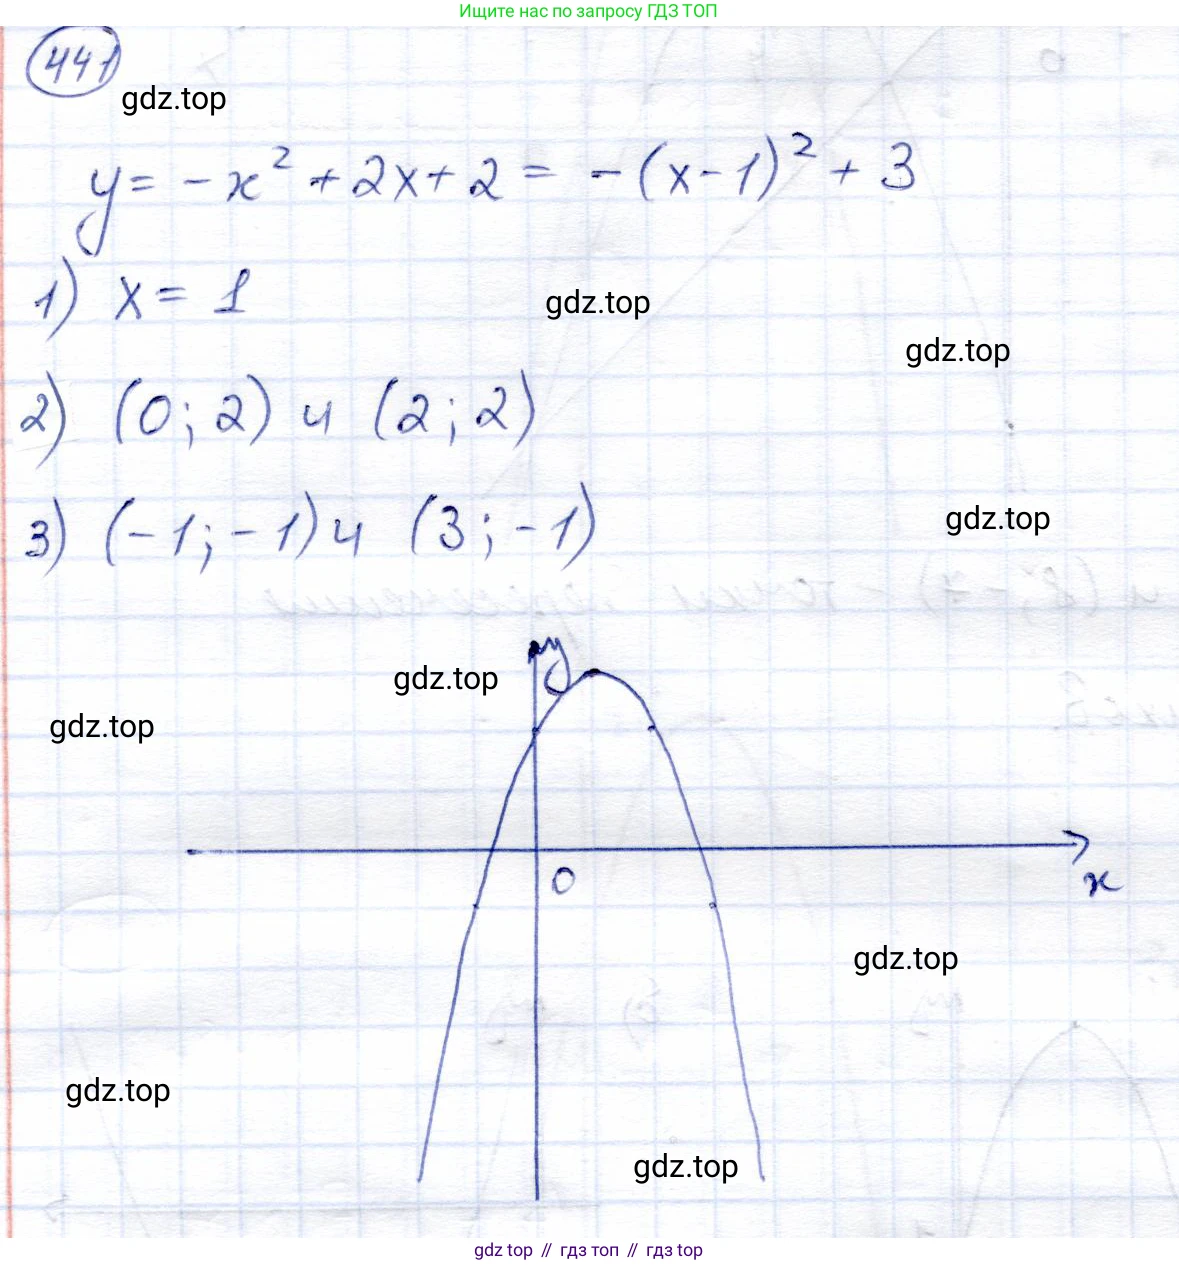 Ищите нас по запросу ГДЗ ТОП
441
gdz.top
y = -x² + 2x + 2 = -(x-1)² + 3
1) x = 1
gdz.top
gdz.top
2) (0; 2) и (2; 2)
3) (-1; -1) и (3; -1)
gdz.top
y
gdz.top
gdz.top
0
x
gdz.top
gdz.top
gdz.top
gdz top // гдз топ // гдз top